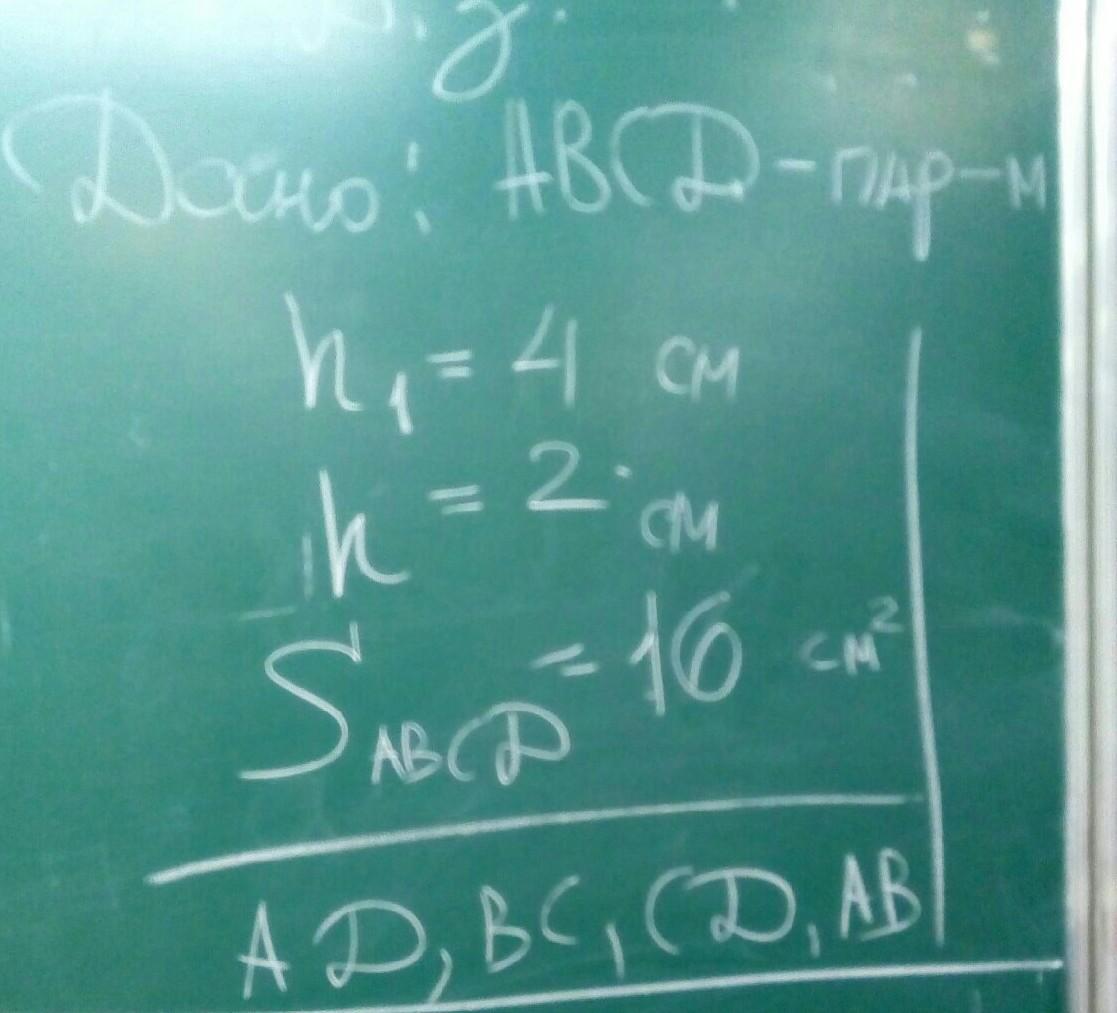 Дано: ABCD - пар-м
h₁ = 4 см
h = 2 см
S ABCD = 16 см²
AD, BC, CD, AB